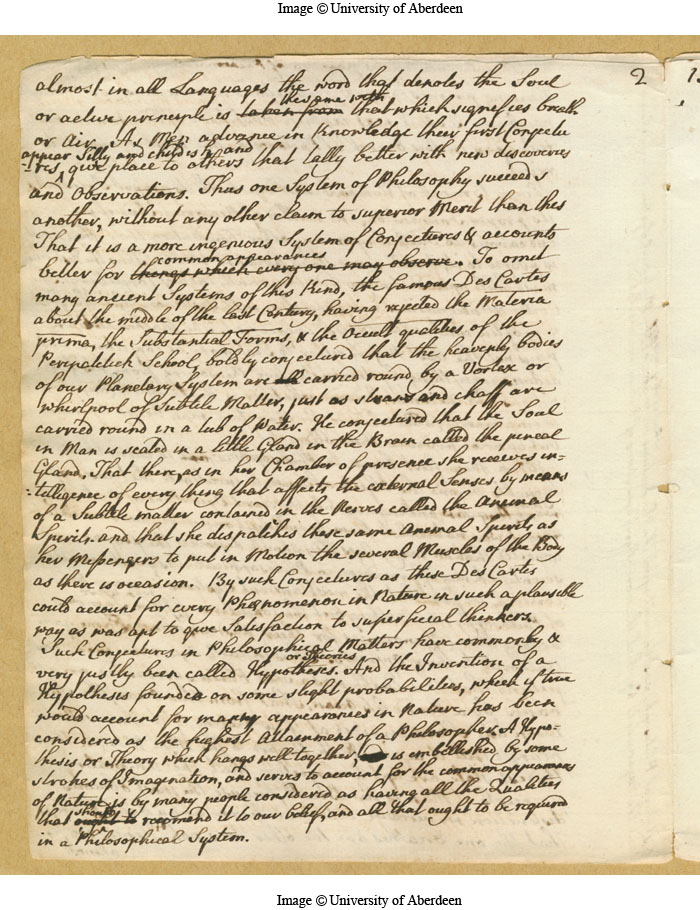 Image © University of Aberdeen
2
almost in all Languages the word that denotes the Soul
or active principle is taken from the same with that which signifies breath
or Air. As Men advance in Knowledge their first Conjectu
-res appear Silly and childish, and give place to others that tally better with new discoveries
and Observations. Thus one System of Philosophy succeeds
another, without any other claim to superior Merit than this
That it is a more ingenious System of Conjectures & accounts
better for things which every one may observe. common appearances To omit
many ancient Systems of this Kind, the famous Des Cartes
about the middle of the last Century, having rejected the Materia
prima, the Substantial Forms, & the Occult qualities of the
Peripatetick School, boldly conjectured that the heavenly bodies
of our Planetary System are carried round by a Vortex or
whirlpool of Subtile Matter, just as straws and chaff are
carried round in a tub of Water. He conjectured that the Soul
in Man is seated in a little Gland in the Brain called the pineal
Gland, That there, as in her Chamber of presence she receives in-
-telligence of every thing that affects the external Senses by means
of a Subtile matter contained in the Nerves called the Animal
Spirits. and that she dispatches these same Animal Spirits as
her Messengers to put in Motion the several Muscles of the Body
as there is occasion. By such Conjectures as these Des Cartes
could account for every Phænomenon in Nature in such a plausible
way as was apt to give Satisfaction to superficial thinkers.
Such Conjectures in Philosophical Matters have commonly &
very justly been called Hypotheses. or Theories And the Invention of a
Hypothesis founded on some slight probabilities, which if true
would account for many appearances in Nature has been
considered as the highest Attainment of a Philosopher. A Hypo-
thesis or Theory which hangs well together, is embellished by some
strokes of Imagination, and serves to account for the common appearances
of Nature is by many people considered as having all the Qualities
that ought to should recomend it to our belief, and all that ought to be required
in a Philosophical System.
Image © University of Aberdeen